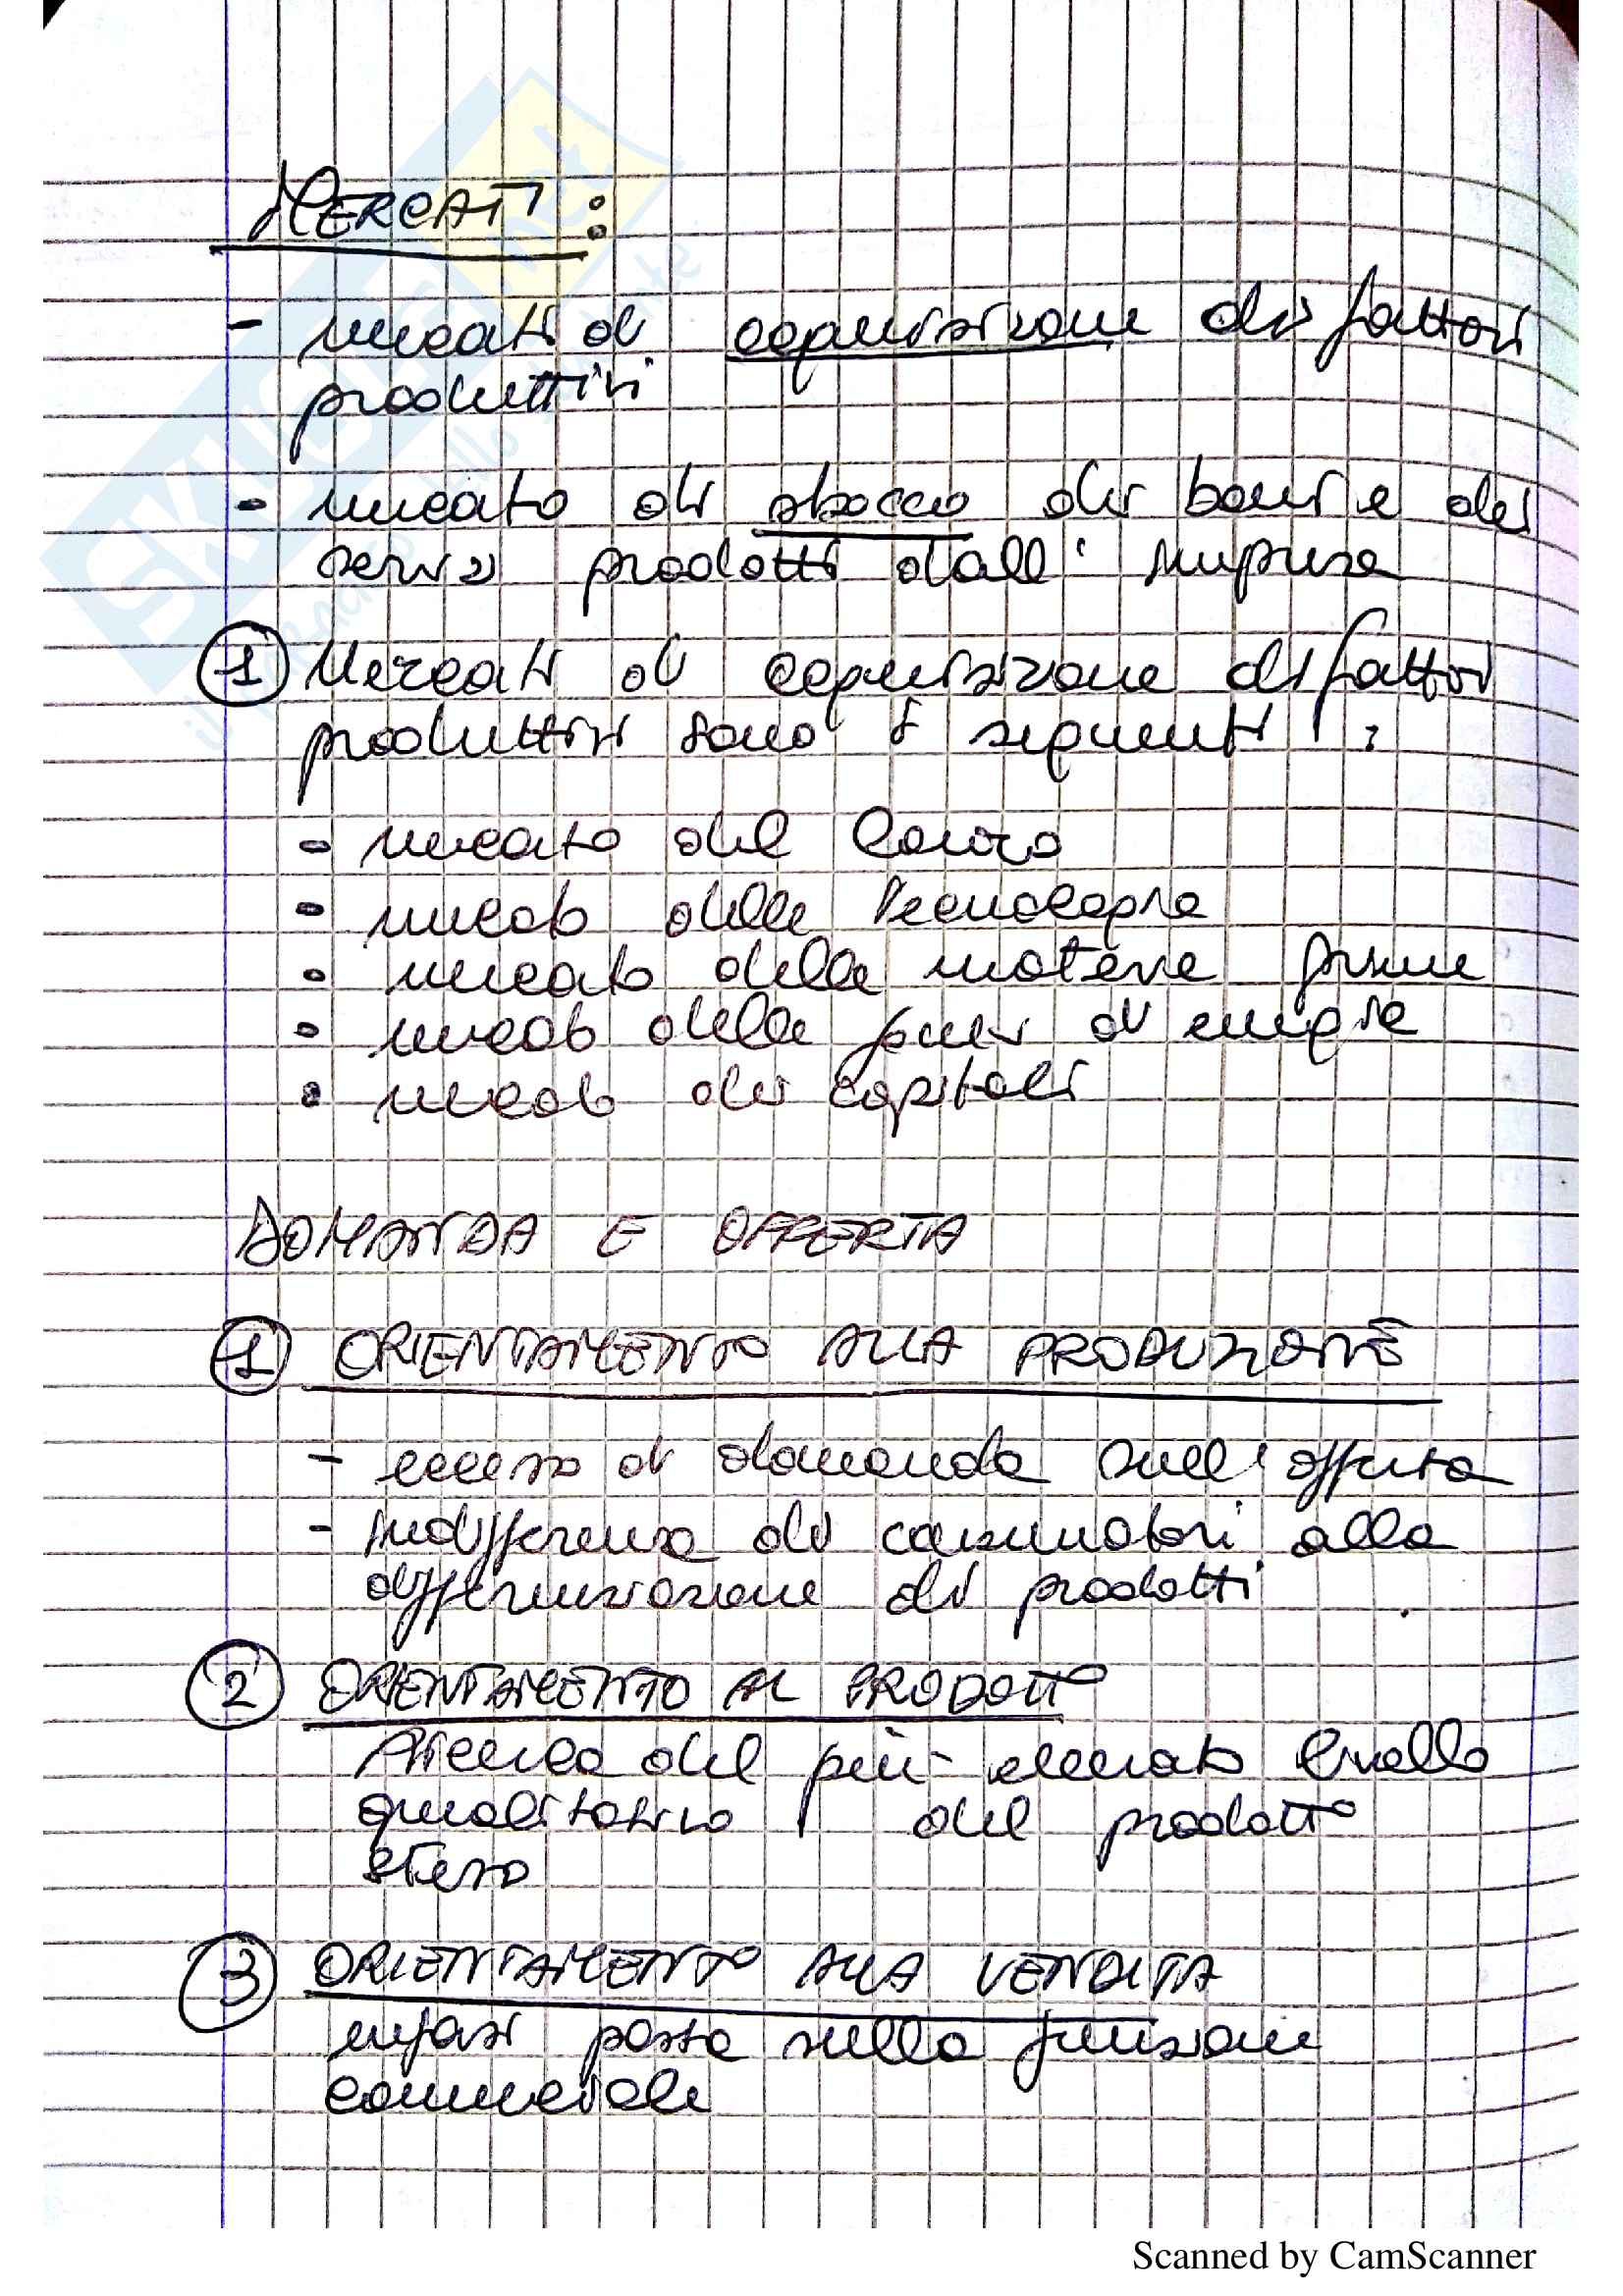 MERCATI :
- mercati di acquisizione dei fattori
produttivi
- mercato di sbocco dei beni e dei
servizi prodotti dall' impresa
1 Mercati di acquisizione di fattori
produttivi sono i seguenti :
- mercato del lavoro
- mercato delle tecnologie
- mercato delle materie prime
- mercato delle fonti di energia
- mercato dei capitali
DOMANDA E OFFERTA
1 ORIENTAMENTO ALLA PRODUZIONE
- eccesso di domanda sull'offerta
- indifferenza dei consumatori alla
differenziazione dei prodotti
2 ORIENTAMENTO AL PRODOTTO
Ricerca del più elevato livello
qualitativo del prodotto
stesso
3 ORIENTAMENTO ALLA VENDITA
enfasi posta sulla funzione
commerciale
SKUOLA.net
Scanned by CamScanner